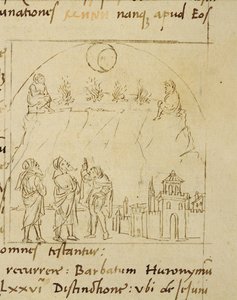 nationes nanq; apud Eos
omnes testantur;
recurrere: Barbatum Huronymũ
LXXVI Distinctione: ubi de Ieiuni